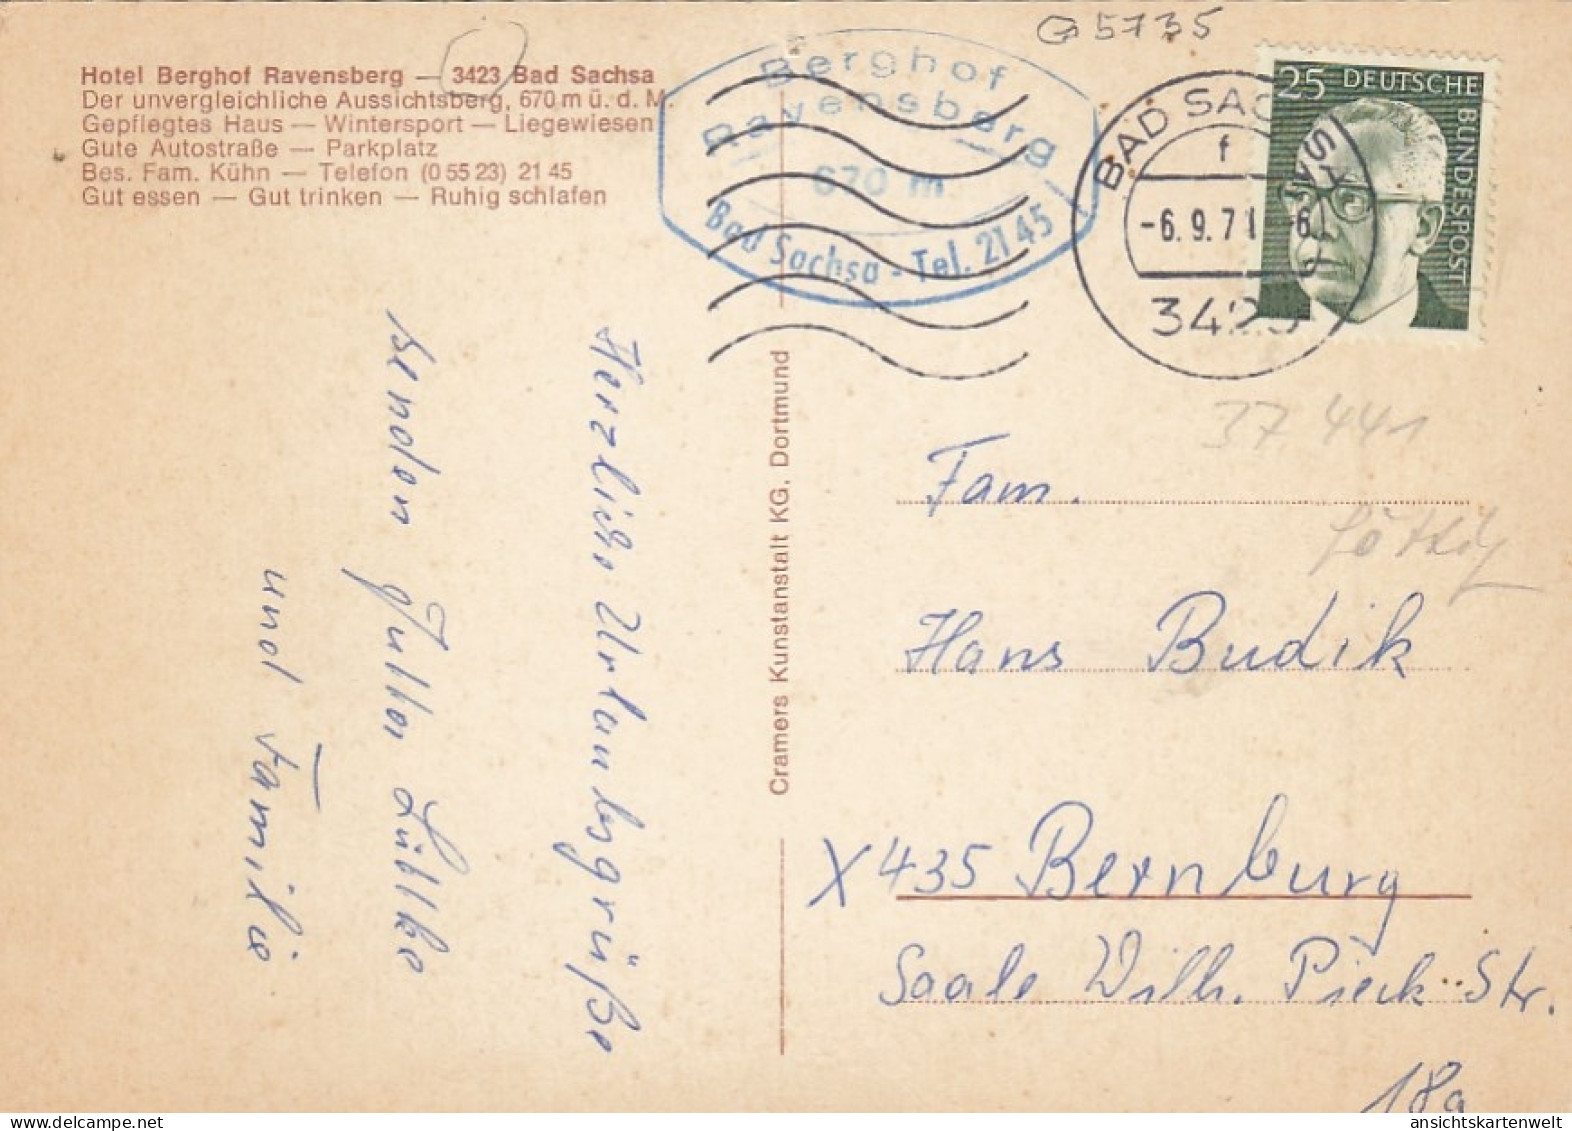 G5735
Hotel Berghof Ravensberg — 3423 Bad Sachsa
Der unvergleichliche Aussichtsberg, 670 m ü. d. M.
Gepflegtes Haus — Wintersport — Liegewiesen
Gute Autostraße — Parkplatz
Bes. Fam. Kühn — Telefon (0 55 23) 21 45
Gut essen — Gut trinken — Ruhig schlafen
Berghof
Ravensberg
670 m
Bad Sachsa - Tel. 21 45
BAD SACHSA
f
-6.9.71 -6
3423
25 DEUTSCHE
BUNDESPOST
Herzliche Urlaubsgrüße
senden
und Familie
Cramers Kunstanstalt KG. Dortmund
37 441
Fam.
Hans Budik
X 435 Bernburg
Saale Wilh. Pieck-Str.
18a
delcampe.net
ansichtskartenwelt